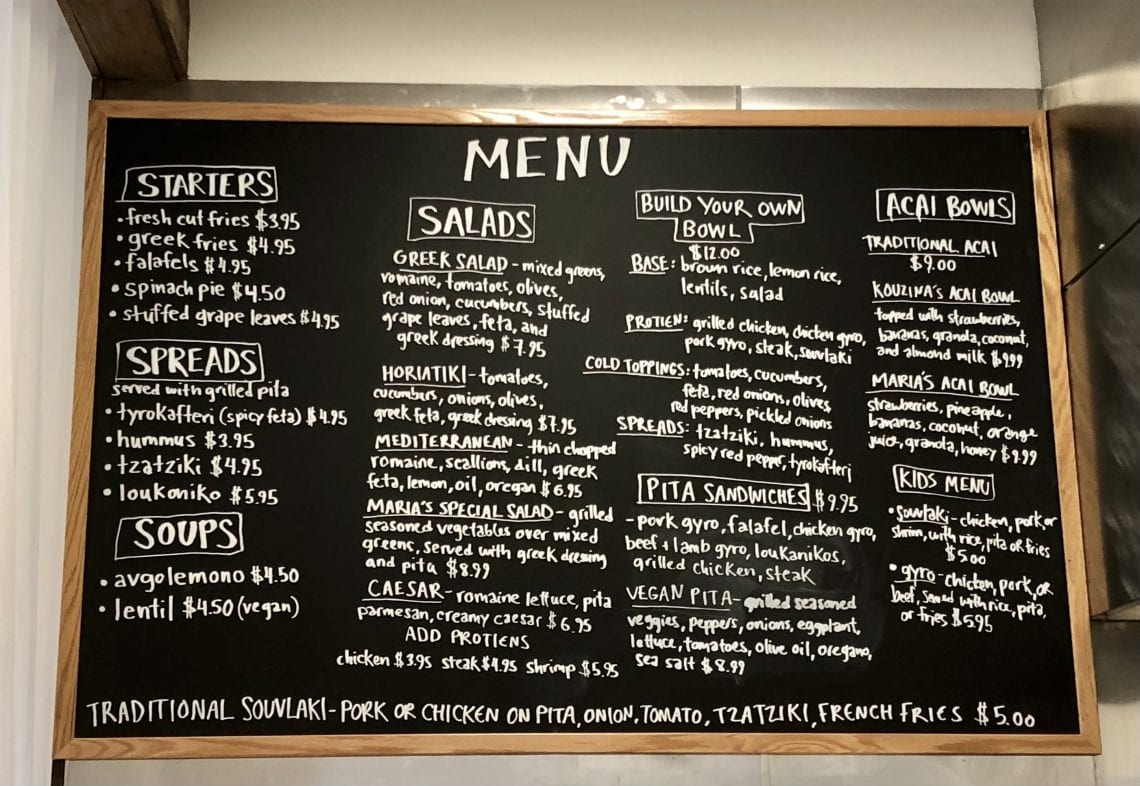 MENU
STARTERS
• fresh cut fries $3.95
• greek fries $4.95
• falafels $4.95
• spinach pie $4.50
• stuffed grape leaves $4.95
SPREADS
served with grilled pita
• tyrokafteri (spicy feta) $4.95
• hummus $3.95
• tzatziki $4.95
• loukaniko $5.95
SOUPS
• avgolemono $4.50
• lentil $4.50 (vegan)
SALADS
GREEK SALAD - mixed greens,
romaine, tomatoes, olives,
red onion, cucumbers, stuffed
grape leaves, feta, and
greek dressing $7.95
HORIATIKI - tomatoes,
cucumbers, onions, olives,
greek feta, greek dressing $7.95
MEDITERRANEAN - thin chopped
romaine, scallions, dill, greek
feta, lemon, oil, oregan $6.95
MARIA'S SPECIAL SALAD - grilled
seasoned vegetables over mixed
greens, served with greek dressing
and pita $8.99
CAESAR - romaine lettuce, pita
parmesan, creamy caesar $6.95
ADD PROTIENS
chicken $3.95 steak $4.95 shrimp $5.95
BUILD YOUR OWN
BOWL
$12.00
BASE: brown rice, lemon rice,
lentils, salad
PROTIEN: grilled chicken, chicken gyro,
pork gyro, steak, souvlaki
COLD TOPPINGS: tomatoes, cucumbers,
feta, red onions, olives
red peppers, pickled onions
SPREADS: tzatziki, hummus,
spicy red pepper, tyrokafteri
PITA SANDWICHES $9.95
- pork gyro, falafel, chicken gyro,
beef + lamb gyro, loukanikos,
grilled chicken, steak
VEGAN PITA - grilled seasoned
veggies, peppers, onions, eggplant,
lettuce, tomatoes, olive oil, oregano,
sea salt $8.99
ACAI BOWLS
TRADITIONAL ACAI
$9.00
KOUZINA'S ACAI BOWL
topped with strawberries,
bananas, granola, coconut,
and almond milk $9.99
MARIA'S ACAI BOWL
strawberries, pineapple,
bananas, coconut, orange
juice, granola, honey $9.99
KIDS MENU
• souvlaki - chicken, pork or
shrim, with rice, pita or fries
$5.00
• gyro - chicken, pork, or
beef, served with rice, pita,
or fries $5.95
TRADITIONAL SOUVLAKI - PORK OR CHICKEN ON PITA, ONION, TOMATO, TZATZIKI, FRENCH FRIES $5.00